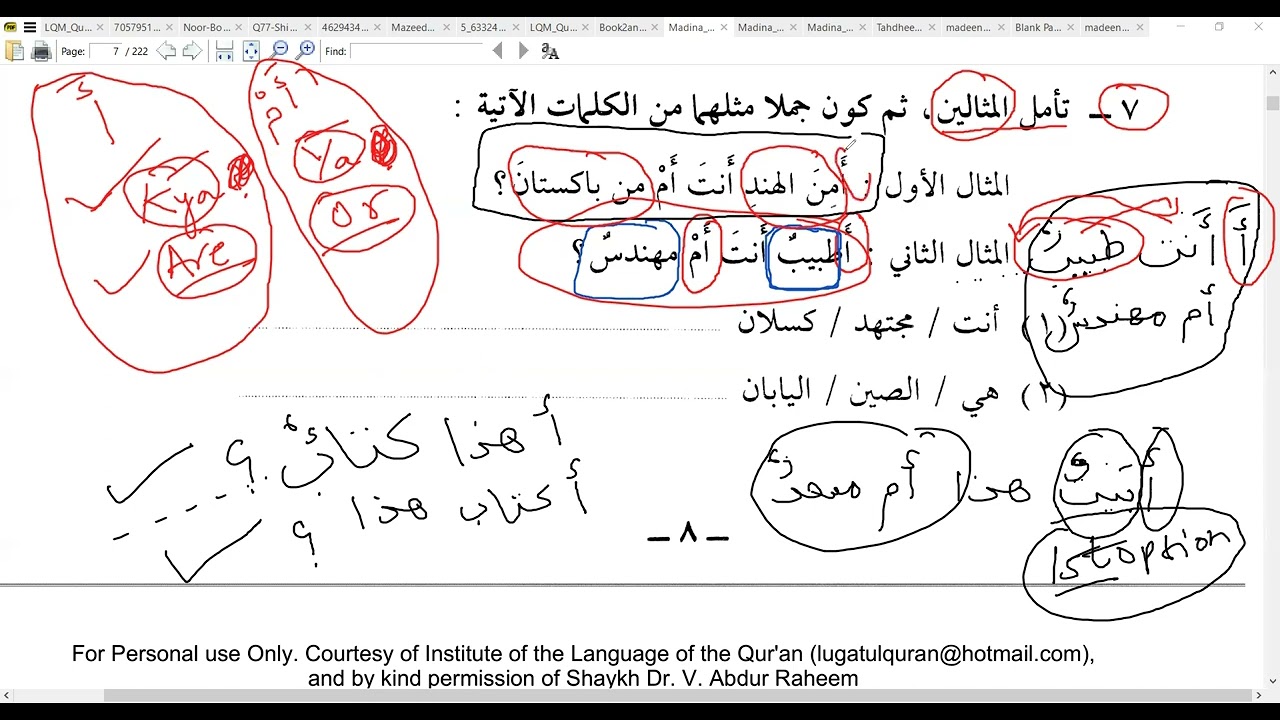 LQM_Qu... 7057951... Noor-Bo... Q77-Shi... 4629434... Mazeed... 5_63324... LQM_Qu... Book2an... Madina_... Madina_... Madina_... Tahdhee... madeen... Blank Pa... madeen...
Page: 7 / 222 Find:
٧ ــ تأمل المثالين، ثم كون جملا مثلهما من الكلمات الآتية :
المثال الأول : أَمِنَ الهندِ أَنتَ أَمْ من باكستانَ ؟
المثال الثاني : أَطبيبٌ أَنتَ أَمْ مهندسٌ ؟
(١) أنت / مجتهد / كسلان
(٢) هي / الصين / اليابان
أَ
Kya
Are
أَمْ
Ya
or
أَ أَنت طبيبٌ
أم مهندسٌ
أ هذا كتابٌ ؟
أ كتاب هذا ؟
أَبَيتٌ هذا أم مسجدٌ
1st option
ــ ٨ ــ
For Personal use Only. Courtesy of Institute of the Language of the Qur'an (lugatulquran@hotmail.com),
and by kind permission of Shaykh Dr. V. Abdur Raheem